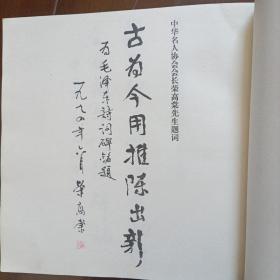 中华名人协会会长荣高棠先生题词
古为今用推陈出新
为毛泽东诗词碑铭题
一九九四年六月 荣高棠